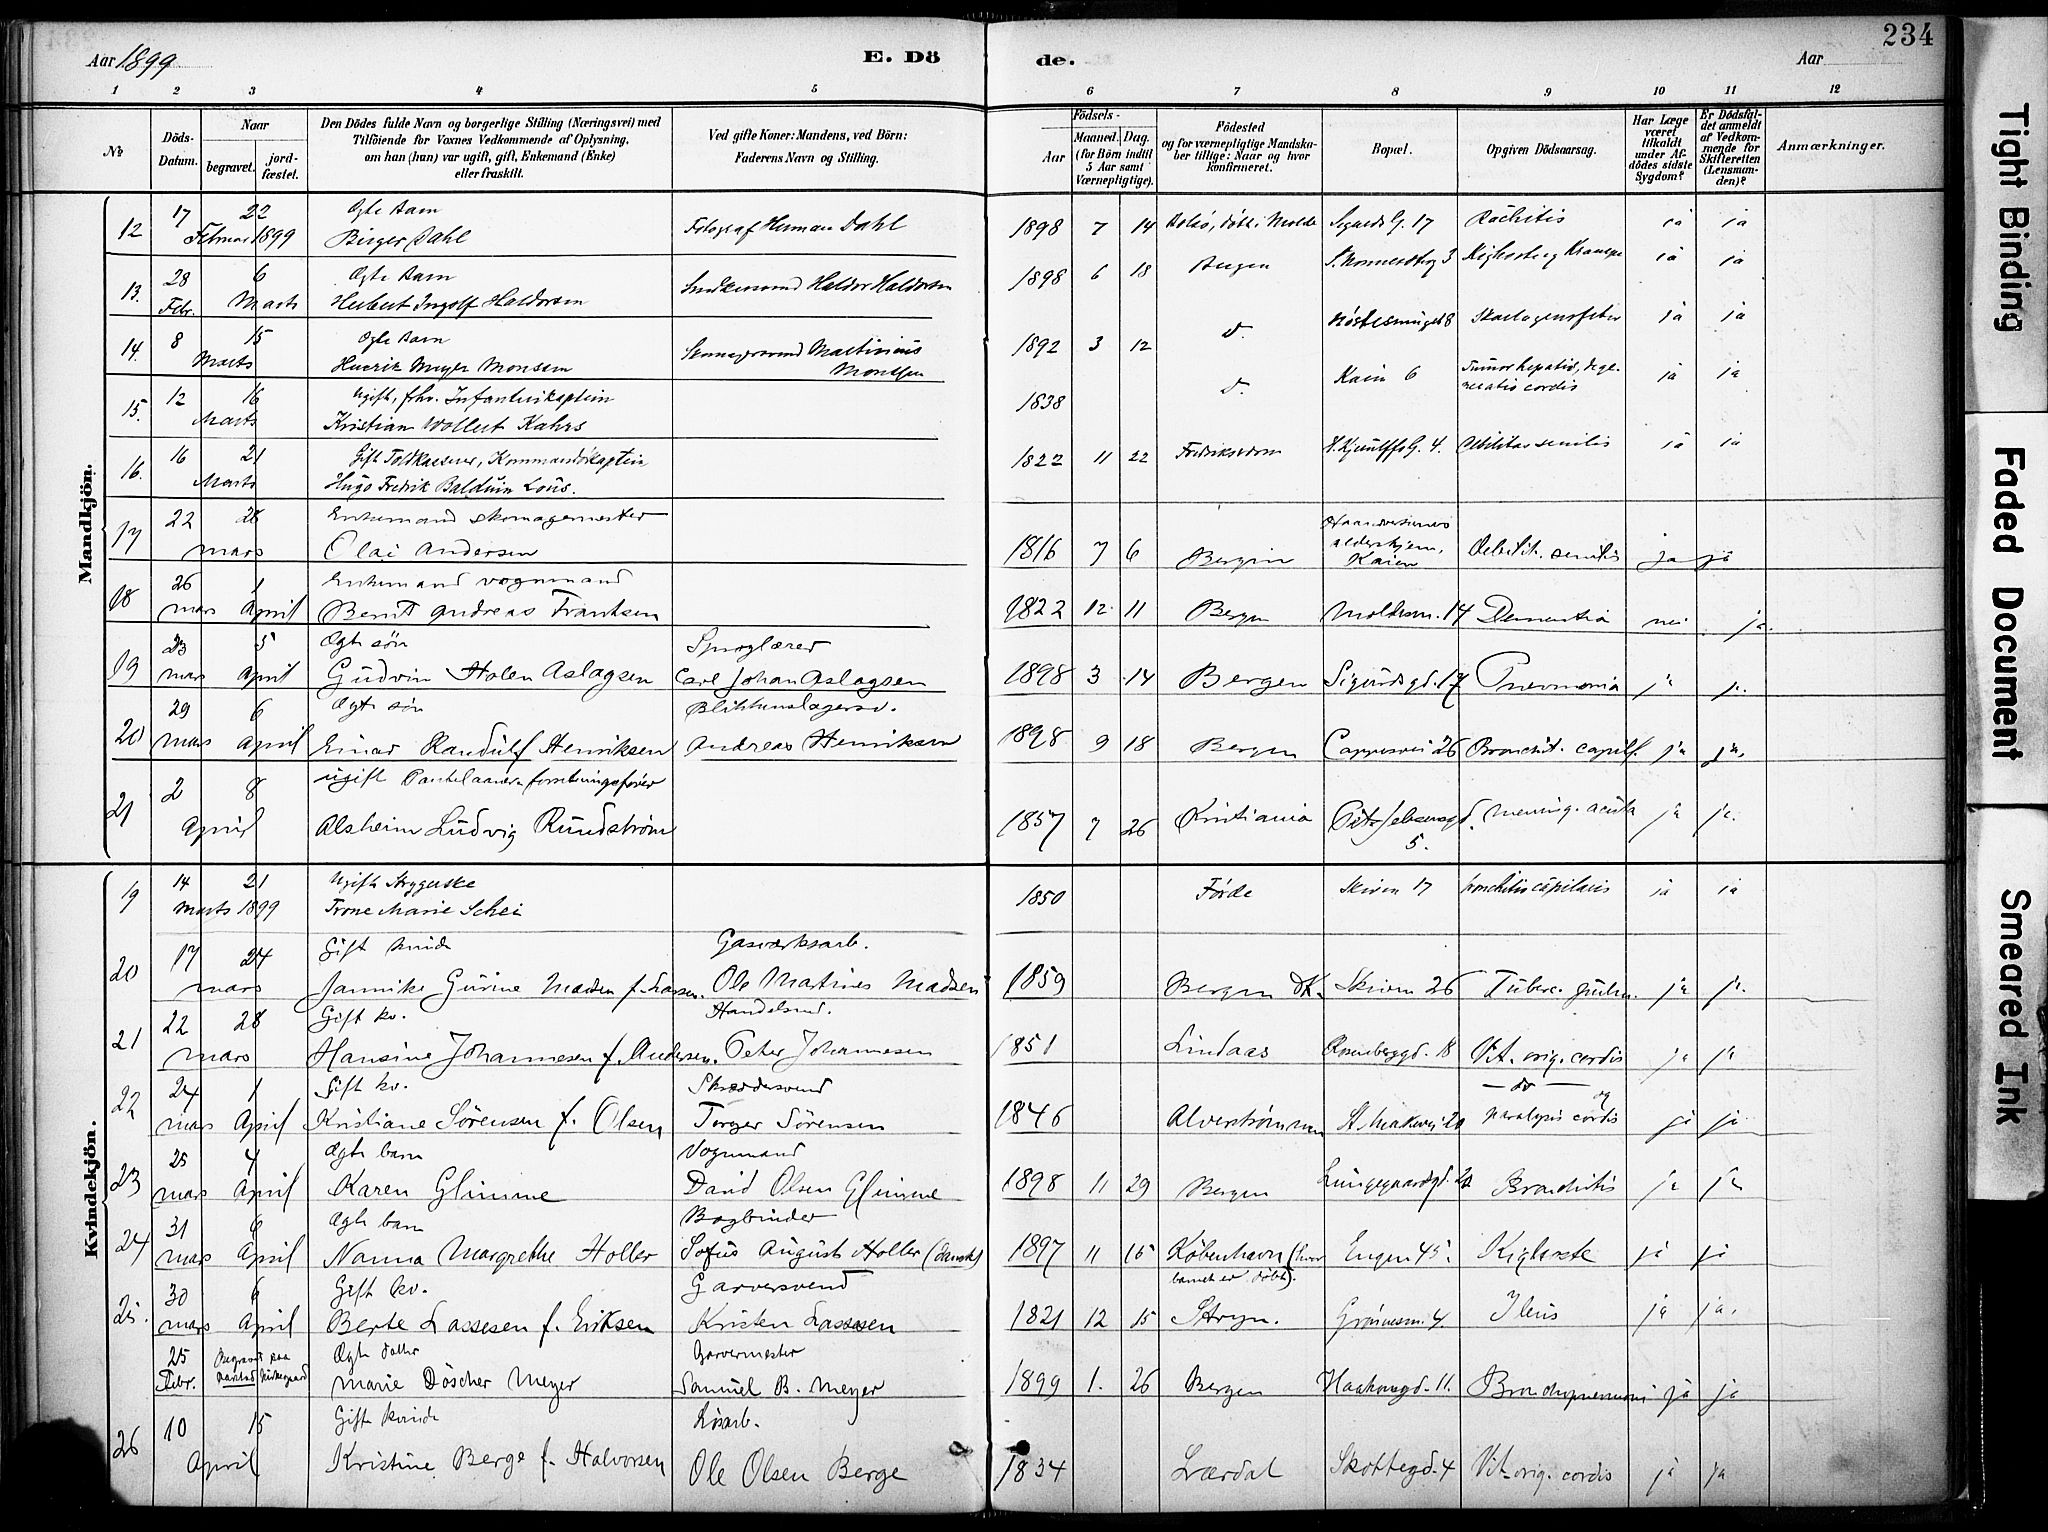 234
Aar 1899
E. Dö
de.
Aar
1 2 3 4 5 6 7 8 9 10 11 12
№
Döds-Datum.
Naar
begravet.
jordfæstet.
Den Dödes fulde Navn og borgerlige Stilling (Næringsvei) med
Tilföiende for Voxnes Vedkommende af Oplysning,
om han (hun) var ugift, gift, Enkemand (Enke)
eller fraskilt.
Ved gifte Koner: Mandens, ved Börn:
Faderens Navn og Stilling.
Födsels-
Aar
Maaned. Dag.
(for Börn indtil
5 Aar samt
Værnepligtige).
Födested
og for værnepligtige Mandskaber tillige: Naar og hvor
konfirmeret.
Bopæl.
Opgiven Dödsaarsag.
Har Læge
været
tilkaldt
under Afdödes sidste
Sygdom?
Er Dödsfaldet anmeldt
af Vedkommende for
Skifteretten
(Lensmanden)?
Anmærkninger.
Mandkjön.
12 17 22 Ogte Barn
Februar 1899 Birger Dahl Fotograf Herman Dahl 1898 7 14 Molde Sigurds G. 17 Rachitis ja ja
13. 28 6 Ægte Barn
Febr. Marts Herbert Ingolf Haldorsen Haldor Haldorsen 1898 6 18 Bergen 3 Krampe ja ja
14. 8 15 Ogte Barn
Marts Henrik Meyer Monsen Martinius
Monssen 1892 3 12 d. 8 Skarlagensfeber ja ja
15. 12 16 Ugift, fhv. Infanterikaptein
Marts Kristian Wollert Kahrs 1838 d. Kaien 6 Tumor hepatis, degeneratio cordis ja ja
16. 16 21 Gift Toldkasserer, Kommandörkaptein
Marts Hugo Fredrik Balduin Lous. 1822 11 22 Fredriksværn 4. Debilitas senilis ja ja
17 22 28 Enkemand skomagermester
mars Olai Andersen 1816 7 6 Bergen aldershjem, Kaien Debilit. senilis ja ja
18 26 1 Enkemand vognmand
mars April Berntt Andreas Frantsen 1822 12 11 Bergen 14 Dementia nei ja.
19 23 5 Ogte sön Sproglærer
mars April Gudvin Holen Aslagsen Carl Johan Aslagsen 1898 3 14 Bergen Sigurdsgd. 17 Pneumonia ja ja.
20 29 6 Ogte sön Blikkenslagersv.
mars April Einar Randulf Henriksen Andreas Henriksen 1898 9 18 Bergen 26 Bronchit. capill. ja ja.
21 2 8 ugift
April Alsheim Ludvig Rundström 1857 7 26 Kristiania Pet. Jebsensgd. 5. Mening. acuta ja ja.
Kvindekjön.
19 14 21 Ugift Strygerske
Marts 1899 Trone Marie Schei 1850 Förde Skiven 17 bronchitis capilaris ja ja
20 17 24 Gift kvinde Gasværksarb.
mars Jannike Gurine Madsen f. Larsen. Ole Martines Madsen 1859 Bergen DK. Skiven 26 Tuberc. pulm. ja ja.
21 22 28 Gift kv. Handelsmd.
mars Hansine Johannesen f. Andersen. Peter Johannesen 1851 Lindaas Rosenberggd. 18 Vit. org. cordis ja ja
22 24 1 Gift kv. Skræddersvend
mars April Kristiane Sörensen f. Olsen Torger Sörensen 1846 Alverströmmen 20 — do — og paralysis cordis ja ja.
23 25 4 Ogte barn Vognmand
mars April Karen Glimme David Olsen Glimme 1898 11 29 Bergen Lungegaardsgd. Bronchitis ja ja
24 31 6 Ogte barn Bogbinder
mars April Nanna Margrethe Holler Sofus August Holler (dansk) 1897 11 15 Köbenhavn (hvor barnet er döbt). Engen 45. Kighoste ja ja
25. 30 6 Gift kv. Garversvend
mars April Berte Lassesen f. Eriksen Kristen Lassesen 1821 12 15 Stryn. 4. Ileus ja ja.
25 Begravet paa Ogte datter Garvermester
Febr. Kirkegaard Marie Döscher Meyer Samuel B. Meyer 1899 1. 26 Bergen Haakonsgd. 11. Bronchopneumoni ja ja
26 10 15 Gift kvinde Lösarb.
April Kristine Berge f. Halvorsen Ole Olsen Berge 1834 Lærdal Skottegd. 4 Vit. org. cordis ja ja
Tight Binding
Faded Document
Smeared Ink